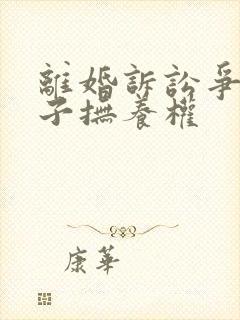 離婚訴訟爭
子撫養權
康華